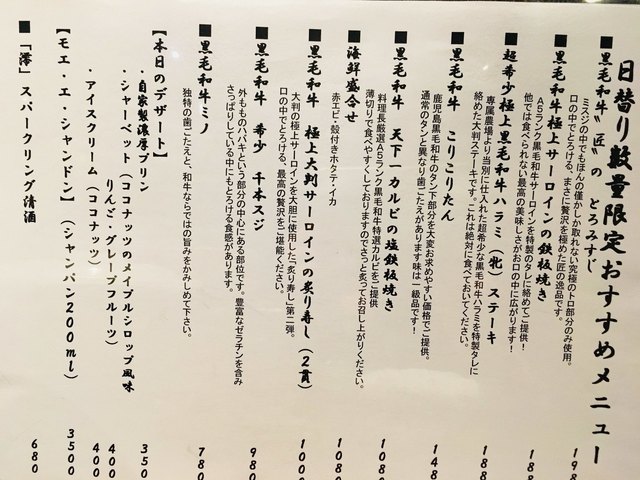 日替り数量限定おすすめメニュー
■黒毛和牛〝匠〟のとろみすじ
ミスジの中でもほんの僅かしか取れない究極のトロ部分のみ使用。
口の中でとろける、まさに贅沢を極めた匠の逸品です。
198
■黒毛和牛極上サーロインの鉄板焼き
A5ランク黒毛和牛サーロインを特製のたれに絡めてご提供!
他では食べられない最高の美味しさがお口の中に広がります!
188
■超希少極上黒毛和牛ハラミ(牝)ステーキ
専属農場より当別に仕入れた超希少な黒毛和牛ハラミを特製タレに
絡めた大判ステーキです。これは絶対に食べておいてください。
188
■黒毛和牛 こりこりたん
鹿児島黒毛和牛のタン下部分を大変お求めやすい価格でご提供。
通常のタンと異なり歯ごたえがあります味は一級品です!
148
■黒毛和牛 天下一カルビの塩鉄板焼き
料理長厳選A5ランク黒毛和牛特選カルビをご提供
薄切りで食べやすくしておりますのでさっと炙ってお召し上がりください。
1080
■海鮮盛合せ
赤エビ・殻付きホタテ・イカ
1080
■黒毛和牛 極上大判サーロインの炙り寿し(2貫)
大判の極上サーロインを大胆に使用した「炙り寿し」第二弾。
口の中でとろける、最高の贅沢をご堪能ください。
1000
■黒毛和牛 希少 千本スジ
外もものハバキという部分の中心にある部位です。豊富なゼラチンを含み
さっぱりしている中にもとろける食感があります。
980
■黒毛和牛ミノ
独特の歯ごたえと、和牛ならではの旨みをかみしめて下さい。
780
【本日のデザート】
・自家製濃厚プリン
350
・シャーベット(ココナッツのメイプルシロップ風味
400
りんご・グレープフルーツ)
400
・アイスクリーム(ココナッツ)
400
【モエ・エ・シャンドン】(シャンパン200ml)
3500
■「澪」スパークリング清酒
680